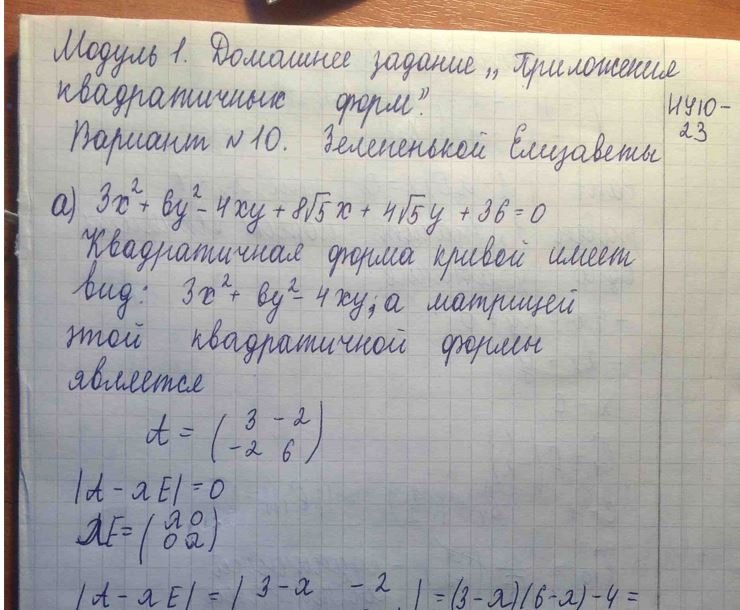 Модуль 1. Домашнее задание „Приложения
квадратичных форм”.
ИУ10-
23
Вариант №10. Зелепенькой Елизаветы
а) 3x² + 6y² - 4xy + 8√5x + 4√5y + 36 = 0
Квадратичная форма кривой имеет
вид: 3x² + 6y² - 4xy, а матрицей
этой квадратичной формы
является
A = (3 -2
-2 6)
|A - λE| = 0
λE = (λ 0
0 λ)
|A - λE| = |3-λ -2 | = (3-λ)(6-λ) - 4 =